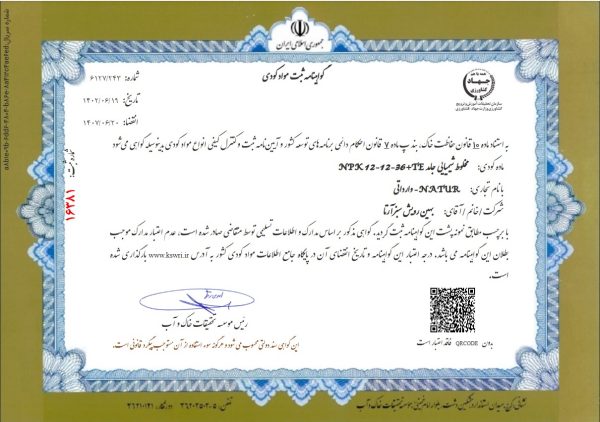 جمهوری اسلامی ایران
گواهینامه ثبت مواد کودی
همه با هم
جهاد
کشاورزی
سازمان تحقیقات، آموزش و ترویج
شماره: ۶۱۲۷/۲۴۲
تاریخ: ۱۴۰۲/۰۶/۱۹
انقضاء: ۱۴۰۷/۰۶/۲۰
شماره ثبت: ۱۶۳۸۱
به استناد ماده ۱۰ قانون حفاظت خاک، بند پ ماده ۷ قانون احکام دائمی برنامه‌های توسعه کشور و آیین‌نامه ثبت و کنترل کیفی انواع مواد کودی بدینوسیله گواهی می‌شود
ماده کودی: مخلوط شیمیایی جامد NPK 12-12-36+TE
با نام تجاری: NATUR - وارداتی
شرکت / خانم / آقای: بهین رویش سبز آرتا
با برچسب مطابق نمونه پشت این گواهینامه ثبت گردید. گواهی مذکور بر اساس مدارک و اطلاعات تسلیمی توسط متقاضی صادر شده است، عدم اعتبار مدارک موجب
بطلان این گواهینامه می باشد. درجه اعتبار این گواهینامه و تاریخ انقضای آن در پایگاه جامع اطلاعات مواد کودی کشور به آدرس www.kswri.ir بارگذاری شده
است.
رئیس موسسه تحقیقات خاک و آب
بدون QRCODE فاقد اعتبار است
این گواهی سند دولتی محسوب می شود و هرگونه سوء استفاده از آن مستوجب پیگرد قانونی است.
نشانی: کرج، میدان استاندارد، مشکین دشت، بلوار امام خمینی، موسسه تحقیقات خاک و آب
تلفن: ۵-۳۶۲۰۲۵۰۲ دورنگار: ۳۶۲۱۰۱۲۱